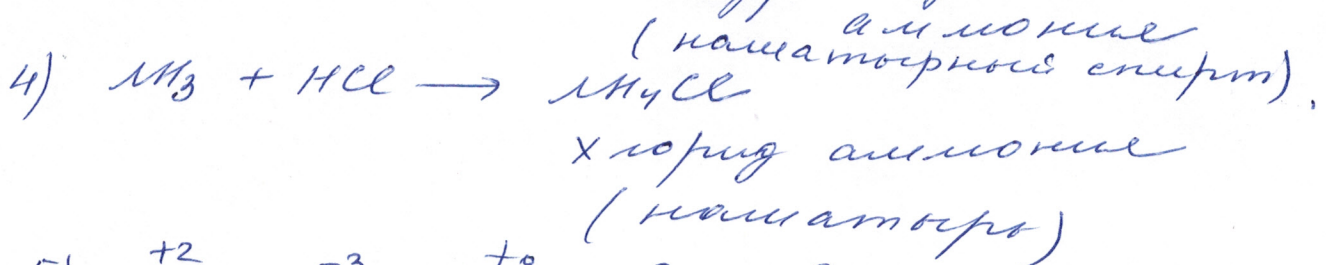 аммония
(нашатырный спирт).
4) NH3 + HCl → NH4Cl
хлорид аммония
(нашатырь)
+2 -3